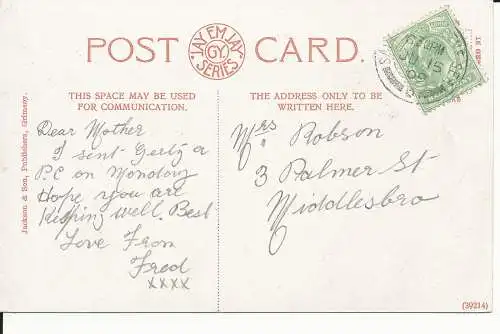 POST CARD.
JAY EM JAY
GY.
SERIES
THIS SPACE MAY BE USED
FOR COMMUNICATION.
THE ADDRESS ONLY TO BE
WRITTEN HERE.
Jackson & Son, Publishers, Grimsby.
Dear Mother
I sent Gerty a
P.C on Monday
Hope you are
Keeping well. Best
Love From
Fred
xxxx
Mrs Robson
3 Palmer St
Middlesbro
(39214)